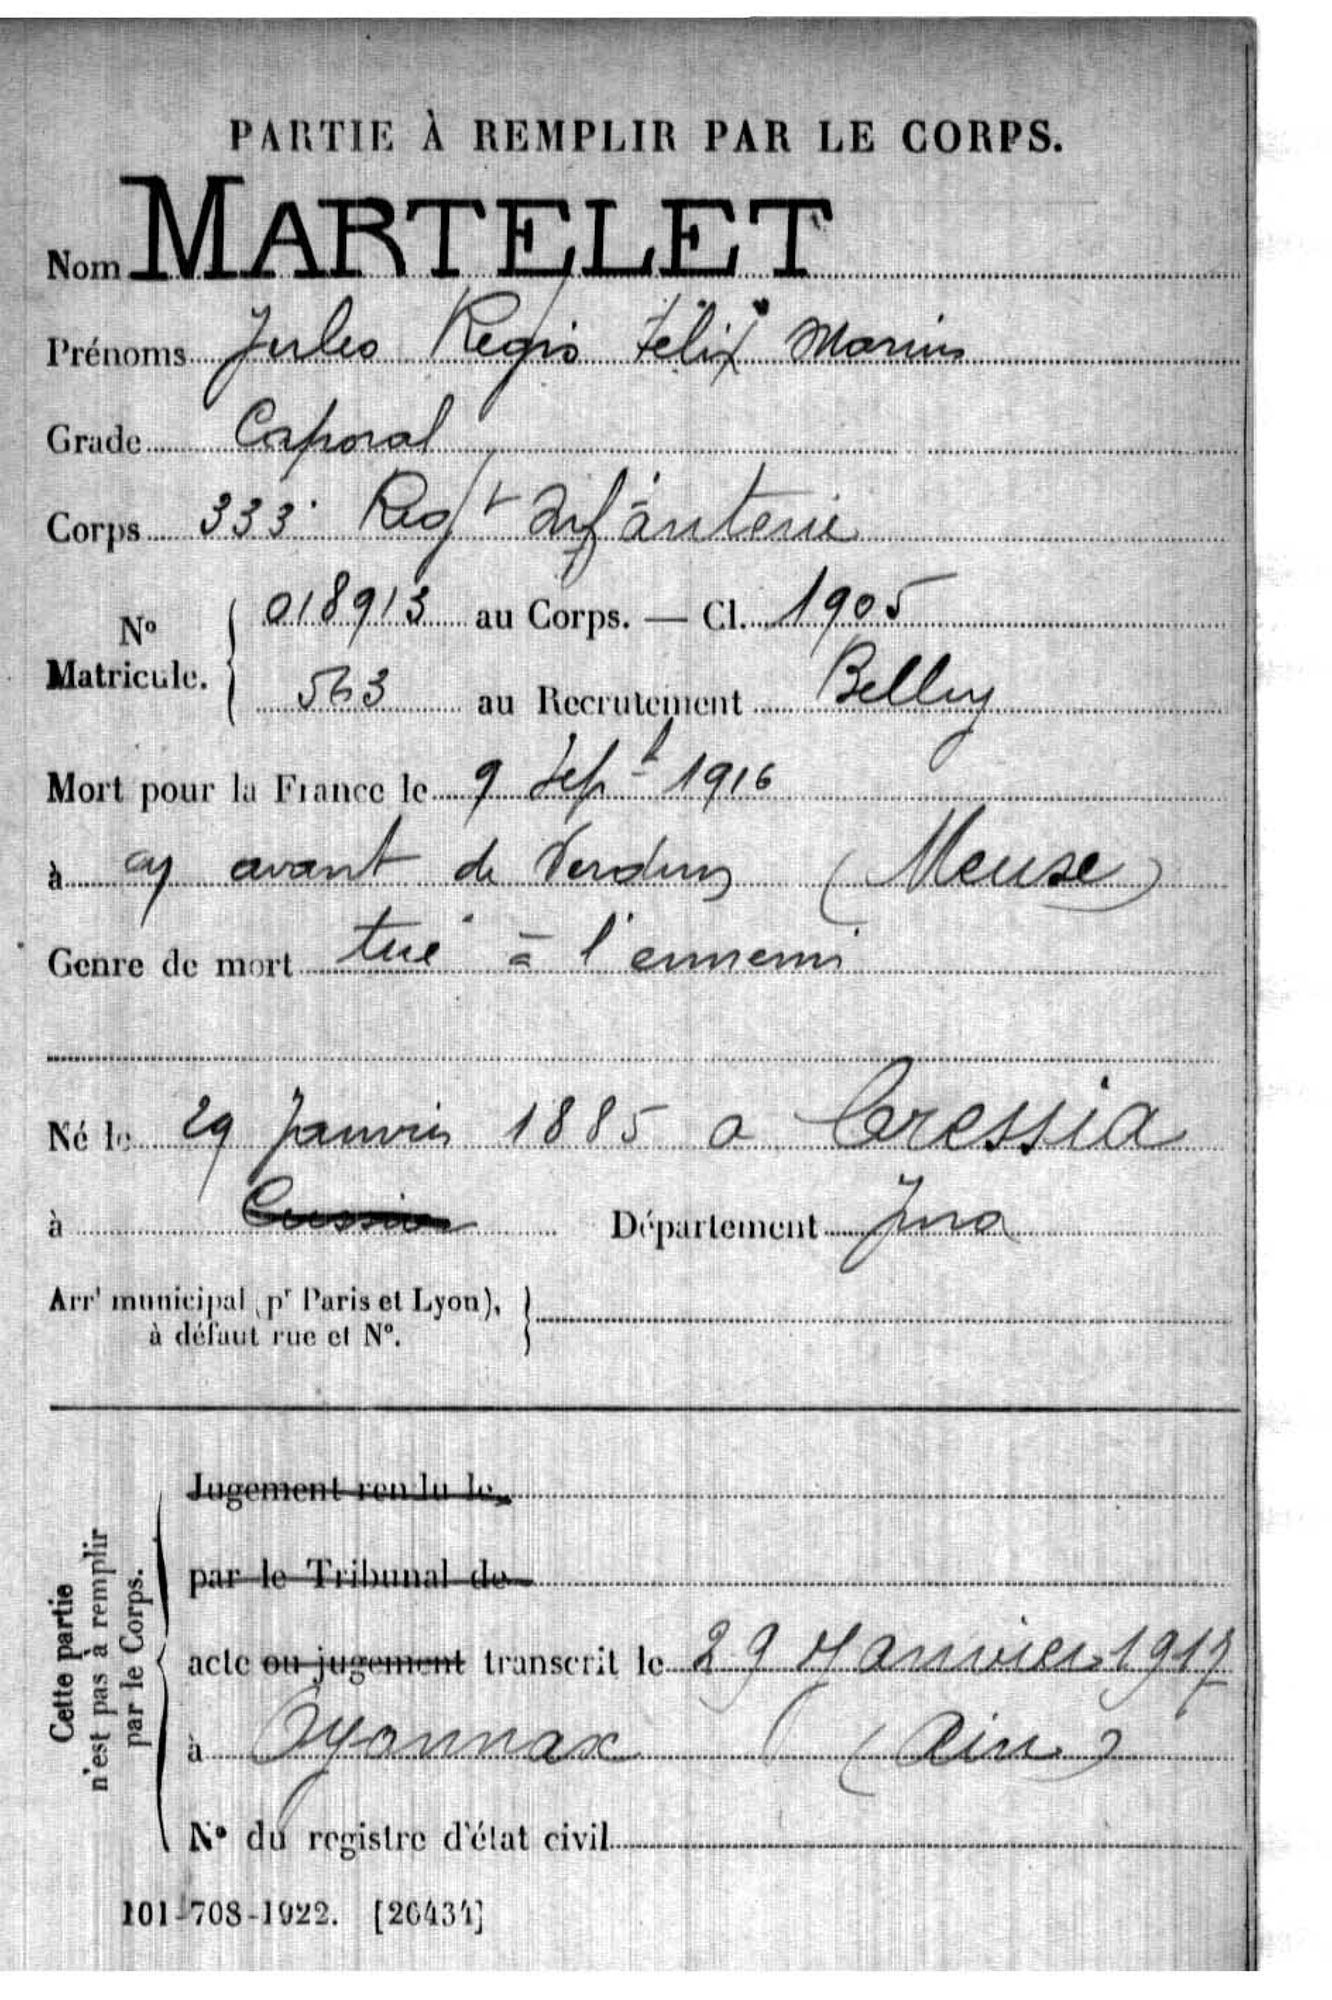 PARTIE À REMPLIR PAR LE CORPS.
Nom MARTELET
Prénoms Jules Regis Felix Marius
Grade Caporal
Corps 333e Regt Infanterie
No Matricule. 018913 au Corps. — Cl. 1905
563 au Recrutement Belley
Mort pour la France le 9 Sept 1916
à en avant de Verdun (Meuse)
Genre de mort tué à l'ennemi
Né le 29 Janvier 1885 a Cressia
à Département Jura
Arrt municipal (pr Paris et Lyon),
à défaut rue et No.
Jugement rendu le
par le Tribunal de
acte ou jugement transcrit le 29 Janvier 1917
à Oyonnax (Ain)
No du registre d'état civil
Cette partie
n'est pas à remplir
par le Corps.
101-708-1922. [26434]